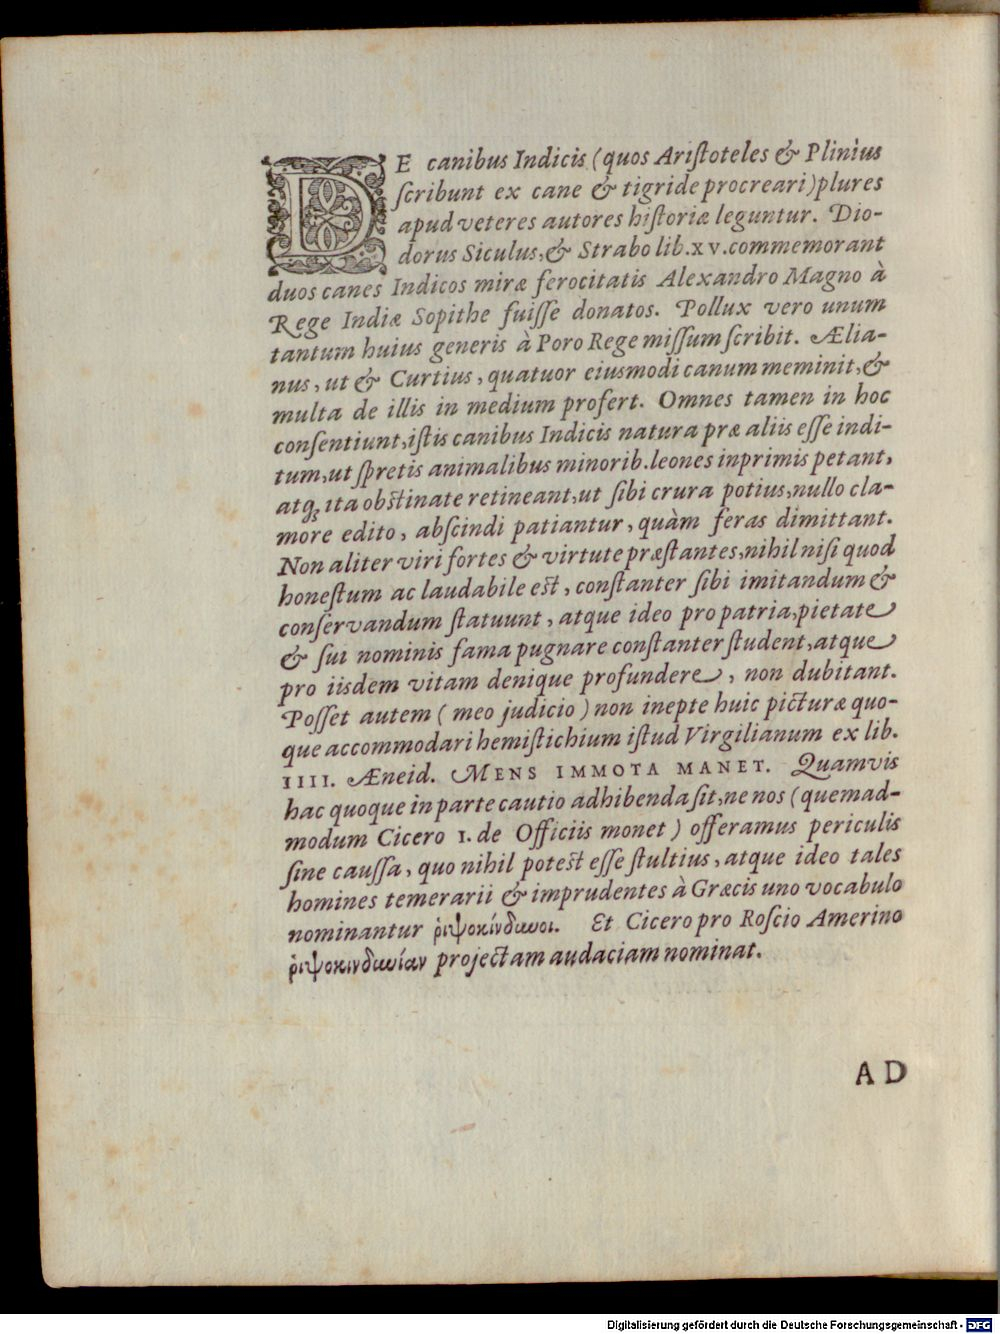 DE canibus Indicis (quos Aristoteles & Plinius
scribunt ex cane & tigride procreari) plures
apud veteres autores historiæ leguntur. Dio-
dorus Siculus, & Strabo lib. xv. commemorant
duos canes Indicos miræ ferocitatis Alexandro Magno à
Rege Indiæ Sopithe fuisse donatos. Pollux vero unum
tantum huius generis à Poro Rege missum scribit. Ælia-
nus, ut & Curtius, quatuor eiusmodi canum meminit, &
multa de illis in medium profert. Omnes tamen in hoc
consentiunt, istis canibus Indicis natura præ aliis esse indi-
tum, ut spretis animalibus minorib. leones inprimis petant,
atq; ita obstinate retineant, ut sibi crura potius, nullo cla-
more edito, abscindi patiantur, quàm feras dimittant.
Non aliter viri fortes & virtute præstantes, nihil nisi quod
honestum ac laudabile est, constanter sibi imitandum &
conservandum statuunt, atque ideo pro patria, pietate
& sui nominis fama pugnare constanter student, atque
pro iisdem vitam denique profundere, non dubitant.
Posset autem (meo judicio) non inepte huic picturæ quo-
que accommodari hemistichium istud Virgilianum ex lib.
IIII. Æneid. MENS IMMOTA MANET. Quamvis
hac quoque in parte cautio adhibenda sit, ne nos (quemad-
modum Cicero 1. de Officiis monet) offeramus periculis
sine caussa, quo nihil potest esse stultius, atque ideo tales
homines temerarii & imprudentes à Græcis uno vocabulo
nominantur ῥιψοκίνδυνοι. Et Cicero pro Roscio Amerino
ῥιψοκινδυνίαν projectam audaciam nominat.
AD
Digitalisierung gefördert durch die Deutsche Forschungsgemeinschaft - DFG